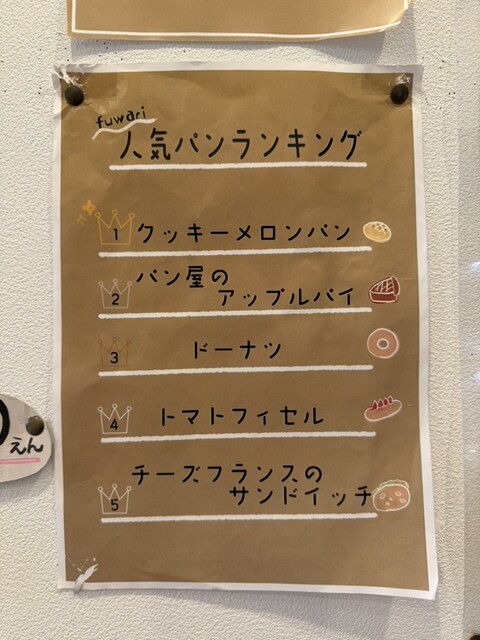 fuwari
人気パンランキング
1 クッキーメロンパン
2 パン屋の
アップルパイ
3 ドーナツ
4 トマトフィセル
チーズフランスの
5 サンドイッチ
えん